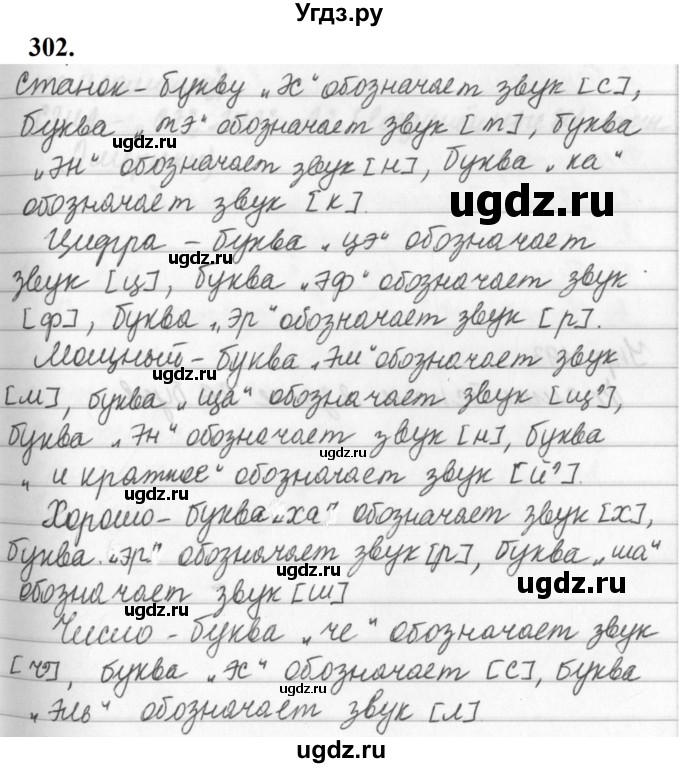 Угдз.ру
302.
Станок – букву „эс“ обозначает звук [с],
буква „тэ“ обозначает звук [т], буква
„эн“ обозначает звук [н], буква „ка“
обозначает звук [к].
ugdz.ru
ugdz.ru
Цифра – буква „цэ“ обозначает
ugdz.ru
звук [ц], буква „эф“ обозначает звук
[ф], буква „эр“ обозначает звук [р].
ugdz.ru
Мощный – буква „эм“ обозначает звук
[м], буква „ща“ обозначает звук [щ'],
ugdz.ru
буква „эн“ обозначает звук [н], буква
„и краткое“ обозначает звук [й'].
ugdz.ru
Хорошо – буква „ха“ обозначает звук [х],
буква „эр“ обозначает звук [р], буква „ша“
ugdz.ru
обозначает звук [ш]
ugdz.ru
ugdz.ru
Число – буква „че“ обозначает звук
[ч'], буква „эс“ обозначает [с], буква
ugdz.ru
„эль“ обозначает звук [л]
ugdz.ru
ugdz.ru